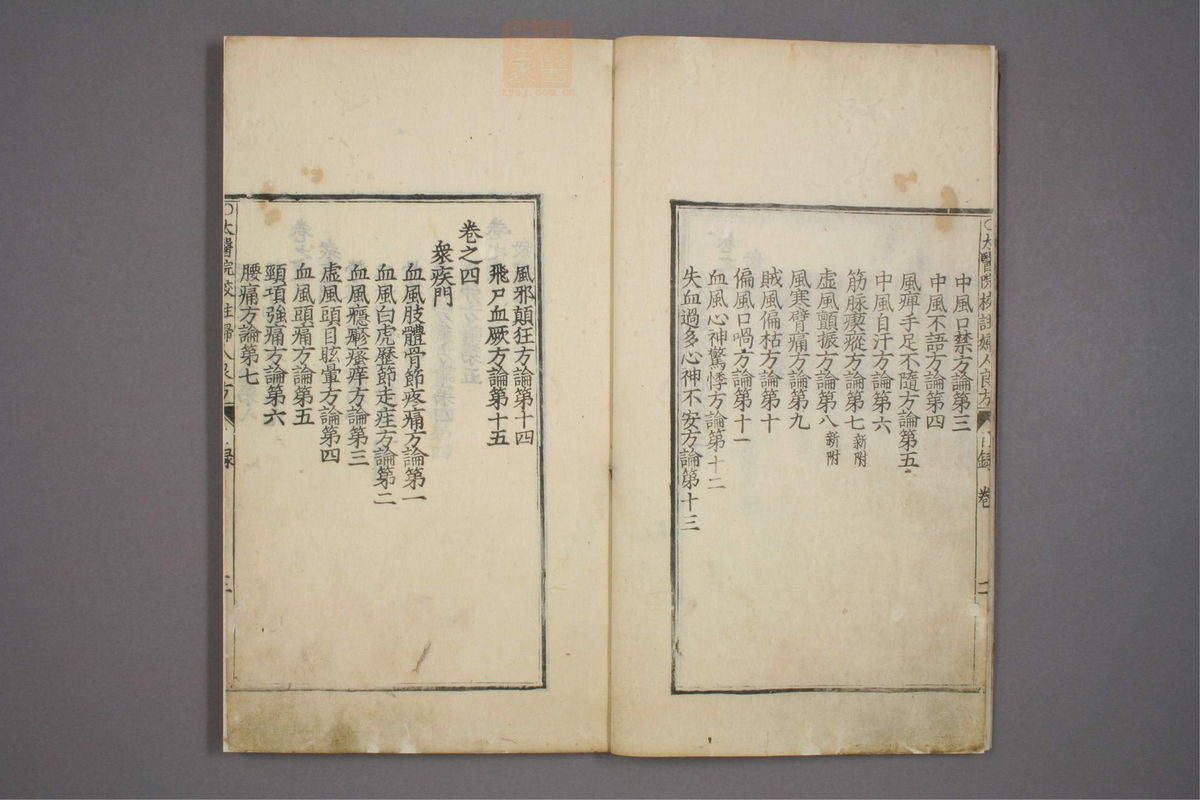 ○太醫院校註婦人良方
目録
卷
二
中風口禁方論第三
中風不語方論第四
風痺手足不隨方論第五
中風自汗方論第六
筋脉瘈瘲方論第七新附
虚風顫振方論第八新附
風寒臂痛方論第九
賊風偏枯方論第十
偏風口喎方論第十一
血風心神驚悸方論第十二
失血過多心神不安方論第十三
風邪顛狂方論第十四
飛尸血厥方論第十五
卷之四
衆疾門
血風肢體骨節疼痛方論第一
血風白虎歷節走疰方論第二
血風癮疹瘙痒方論第三
虚風頭目眩暈方論第四
血風頭痛方論第五
頸項強痛方論第六
腰痛方論第七
○太醫院校註婦人良方
録
三
zysj.com.cn